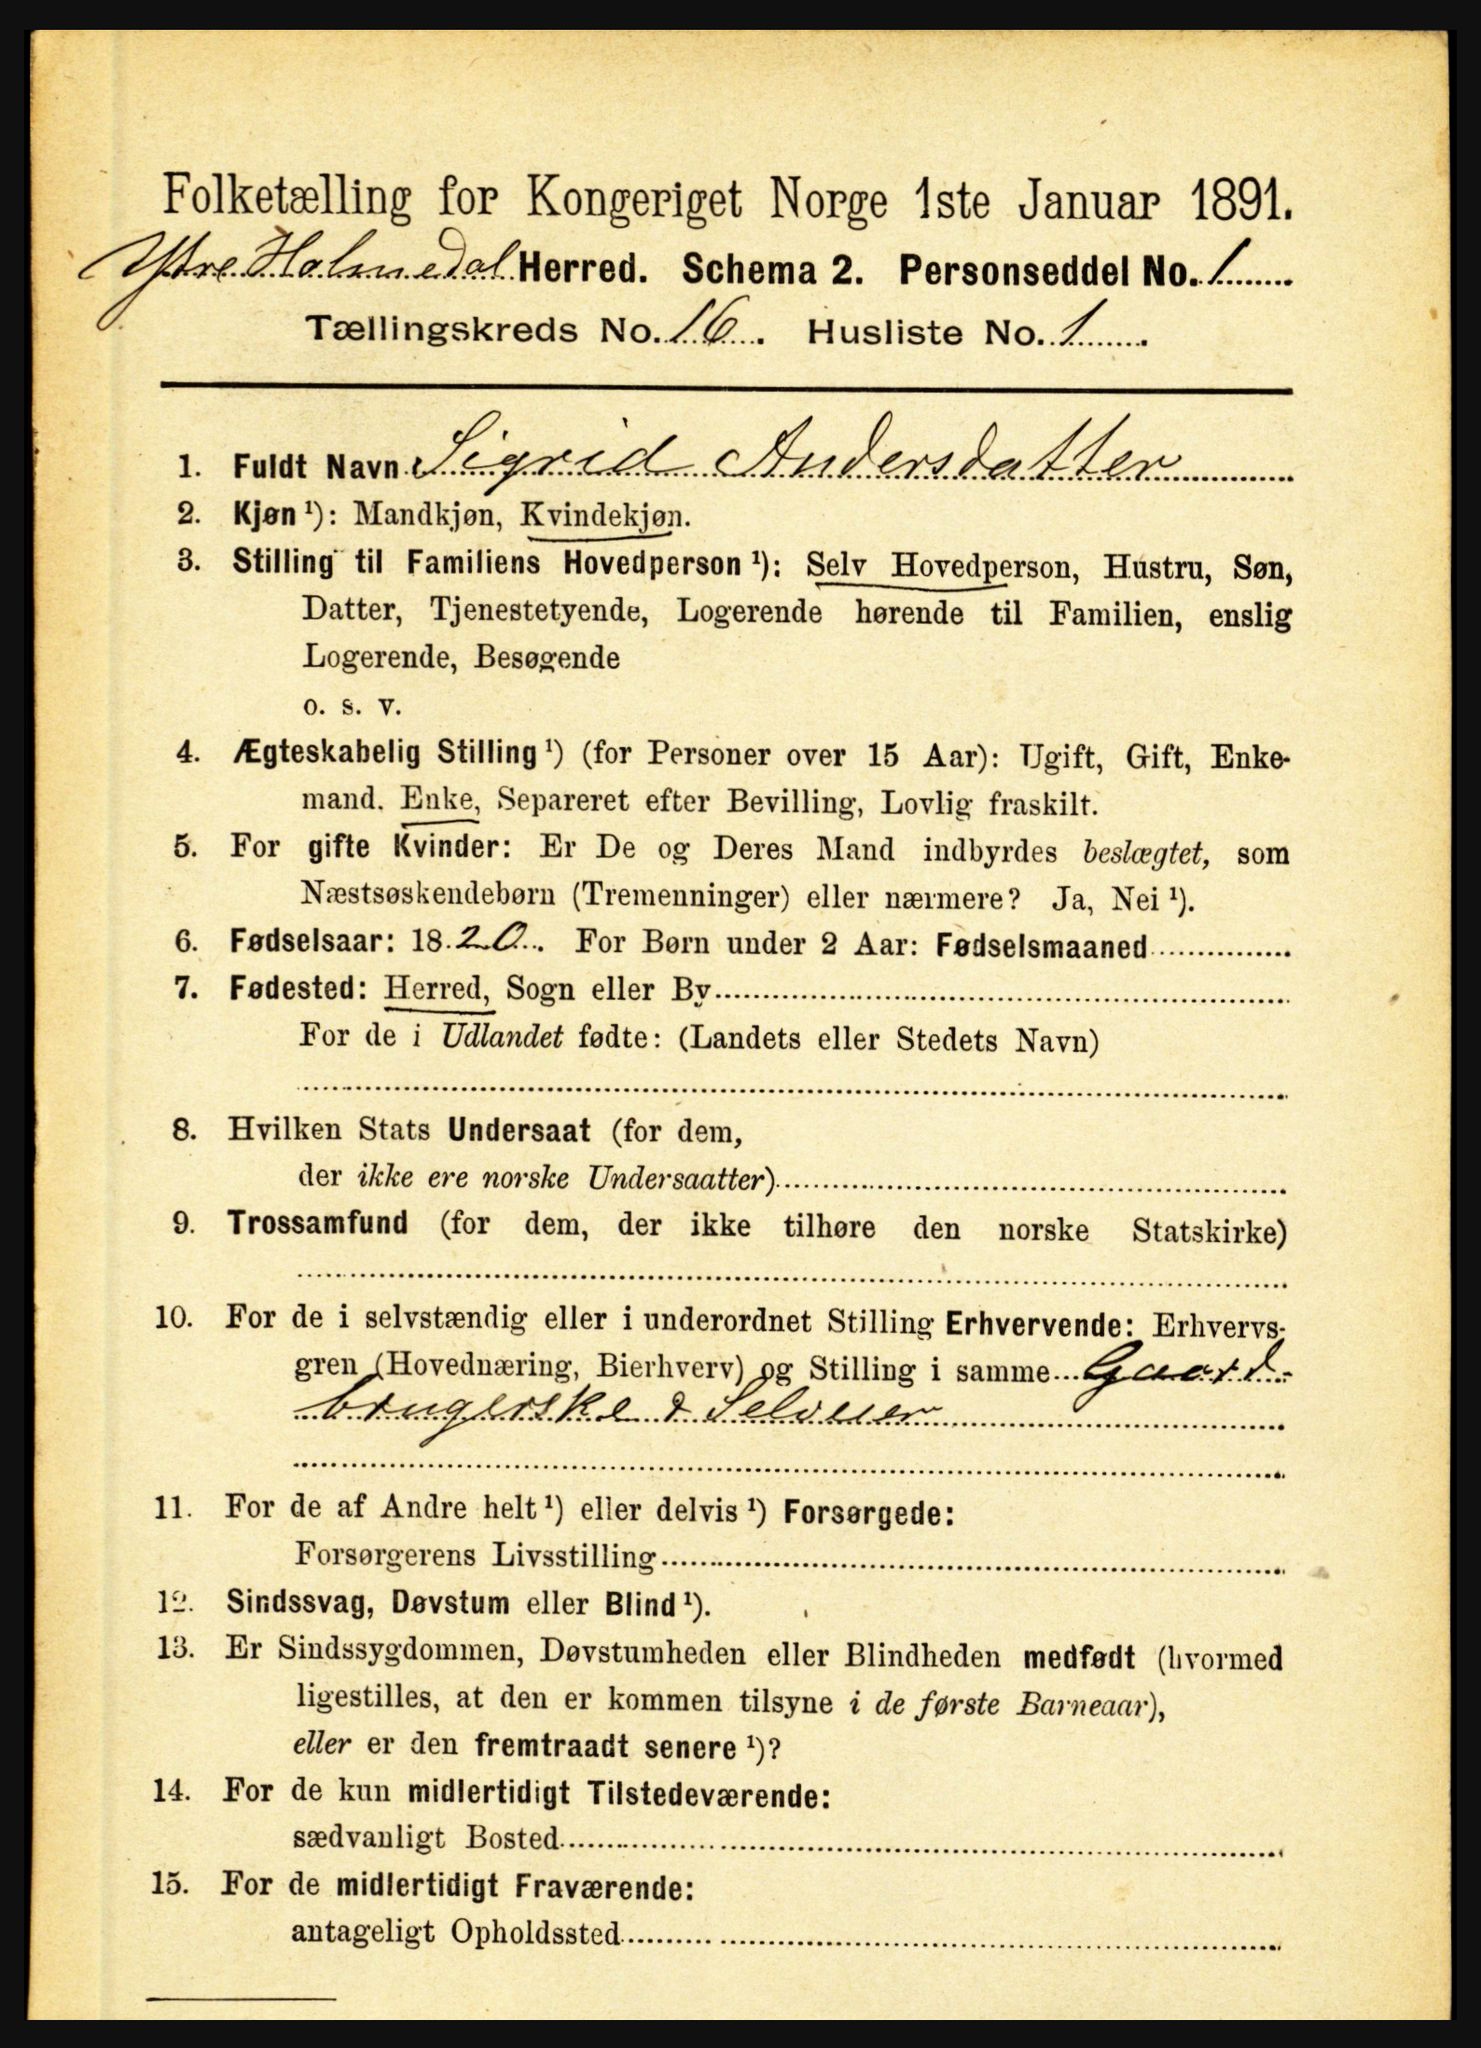 Folketælling for Kongeriget Norge 1ste Januar 1891.
Ytre Holmedal Herred. Schema 2. Personseddel No. 1
Tællingskreds No. 16. Husliste No. 1
1. Fuldt Navn Sigrid Andersdatter
2. Kjøn ¹): Mandkjøn, Kvindekjøn.
3. Stilling til Familiens Hovedperson ¹): Selv Hovedperson, Hustru, Søn,
Datter, Tjenestetyende, Logerende hørende til Familien, enslig
Logerende, Besøgende
o. s. v.
4. Ægteskabelig Stilling ¹) (for Personer over 15 Aar): Ugift, Gift, Enke-
mand. Enke, Separeret efter Bevilling, Lovlig fraskilt.
5. For gifte Kvinder: Er De og Deres Mand indbyrdes beslægtet, som
Næstsøskendebørn (Tremenninger) eller nærmere? Ja, Nei ¹).
6. Fødselsaar: 1820. For Børn under 2 Aar: Fødselsmaaned
7. Fødested: Herred, Sogn eller By
For de i Udlandet fødte: (Landets eller Stedets Navn)
8. Hvilken Stats Undersaat (for dem,
der ikke ere norske Undersaatter)
9. Trossamfund (for dem, der ikke tilhøre den norske Statskirke)
10. For de i selvstændig eller i underordnet Stilling Erhvervende: Erhvervs-
gren (Hovednæring, Bierhverv) og Stilling i samme Gaard-
brugerske & Selveier
11. For de af Andre helt ¹) eller delvis ¹) Forsørgede:
Forsørgerens Livsstilling
12. Sindssvag, Døvstum eller Blind ¹).
13. Er Sindssygdommen, Døvstumheden eller Blindheden medfødt (hvormed
ligestilles, at den er kommen tilsyne i de første Barneaar),
eller er den fremtraadt senere ¹)?
14. For de kun midlertidigt Tilstedeværende:
sædvanligt Bosted
15. For de midlertidigt Fraværende:
antageligt Opholdssted